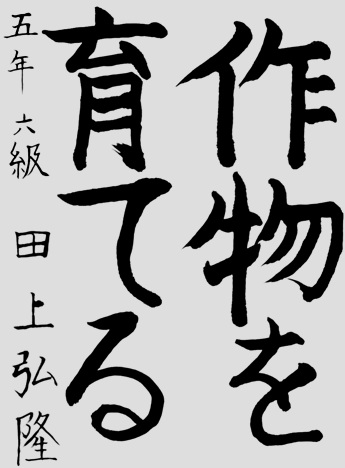 作物を
育てる
五年 六級 田上弘隆